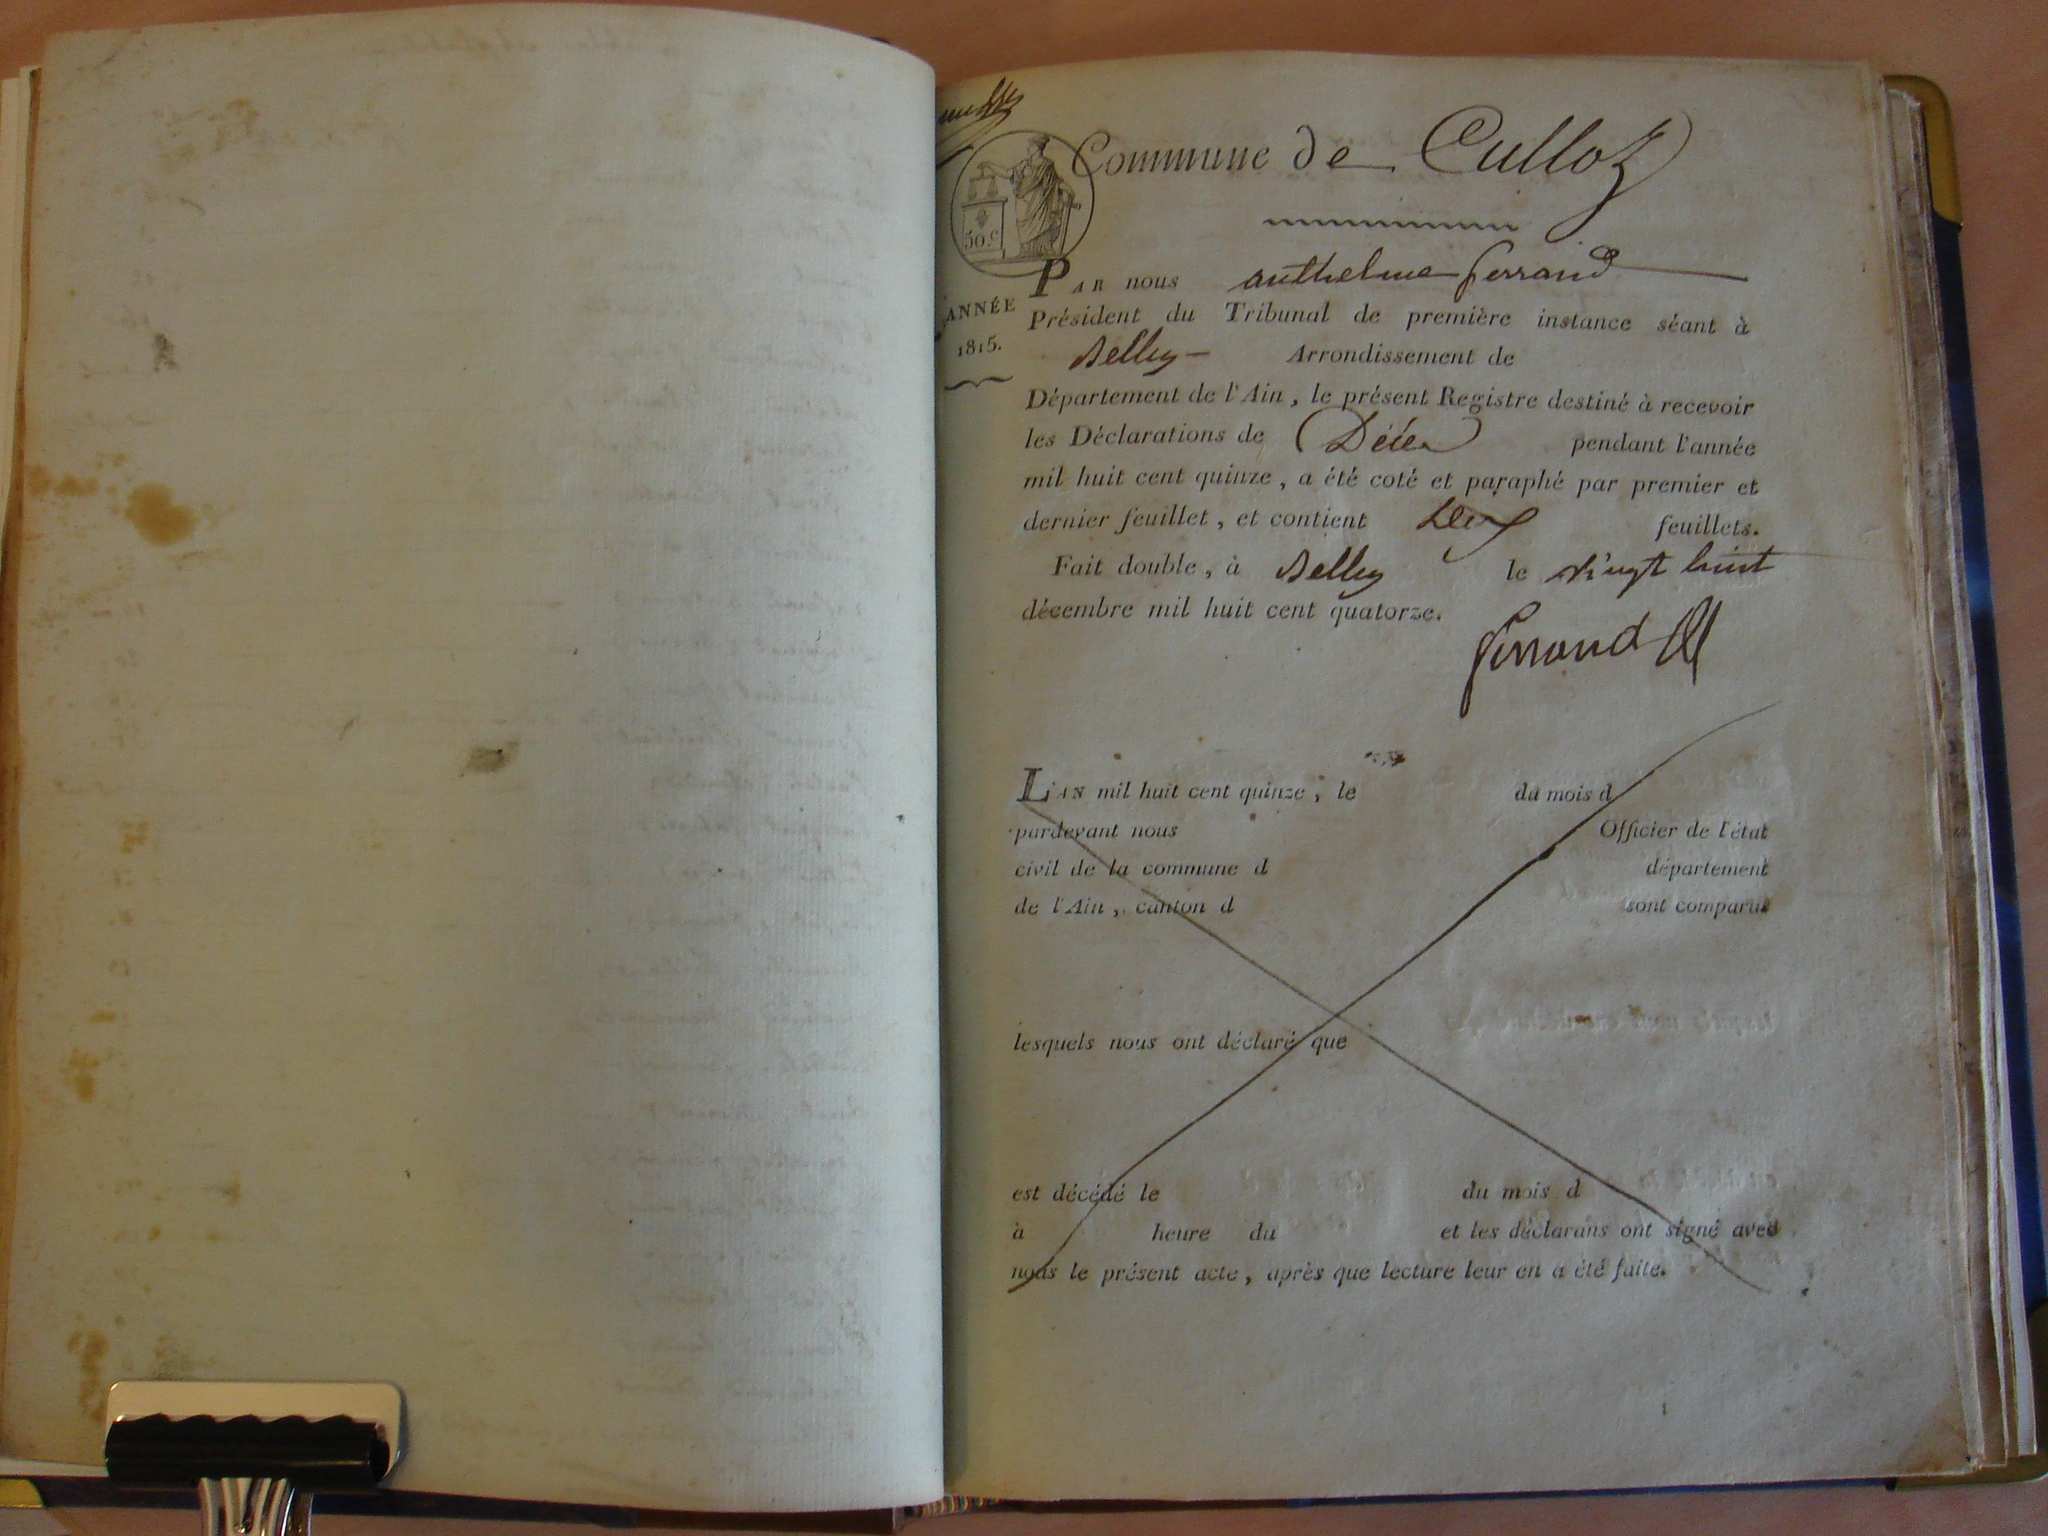 Commune de Culloz
50.c
PAR nous anthelme ferrand
ANNÉE
1815.
Président du Tribunal de première instance séant à
Belley Arrondissement de
Département de l'Ain, le présent Registre destiné à recevoir
les Déclarations de Décès pendant l'année
mil huit cent quinze, a été coté et paraphé par premier et
dernier feuillet, et contient feuillets.
Fait double, à Belley le vingt huit
décembre mil huit cent quatorze.
ferrand
L'AN mil huit cent quinze, le du mois d
pardevant nous Officier de l'état
civil de la commune d département
de l'Ain, canton d sont comparus
lesquels nous ont déclaré que
est décédé le du mois d
à heure du et les déclarans ont signé avec
nous le présent acte, après que lecture leur en a été faite.